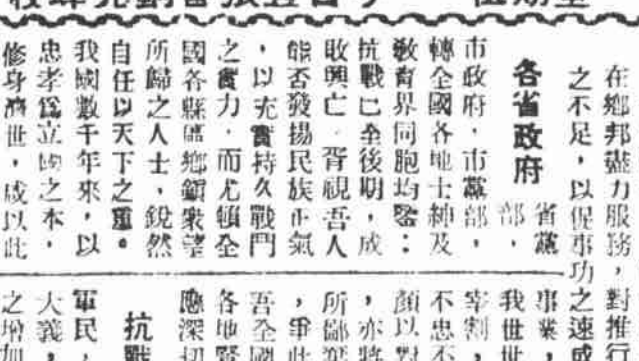 在鄉邦盡力服務，對推行
之不足，以促事功之速成
各省政府
省黨
部，
市政府，市黨部，
轉全國各地士紳及
敎育界同胞均鑒：
抗戰已至後期，成
敗興亡，胥視吾人
能否發揚民族正氣
，以充實持久戰鬥
之實力，而尤頼全
國各縣區鄉鎭衆望
所歸之人士，銳然
自任以天下之重。
我國數千年來，以
忠孝爲立國之本，
修身濟世，咸以此
事業
我世世
宰割，
不忠不
顏以對
，亦將
所鄙棄
，爭此
吾全國
各地賢
應深切
抗戰
軍民，
大義，
之增加